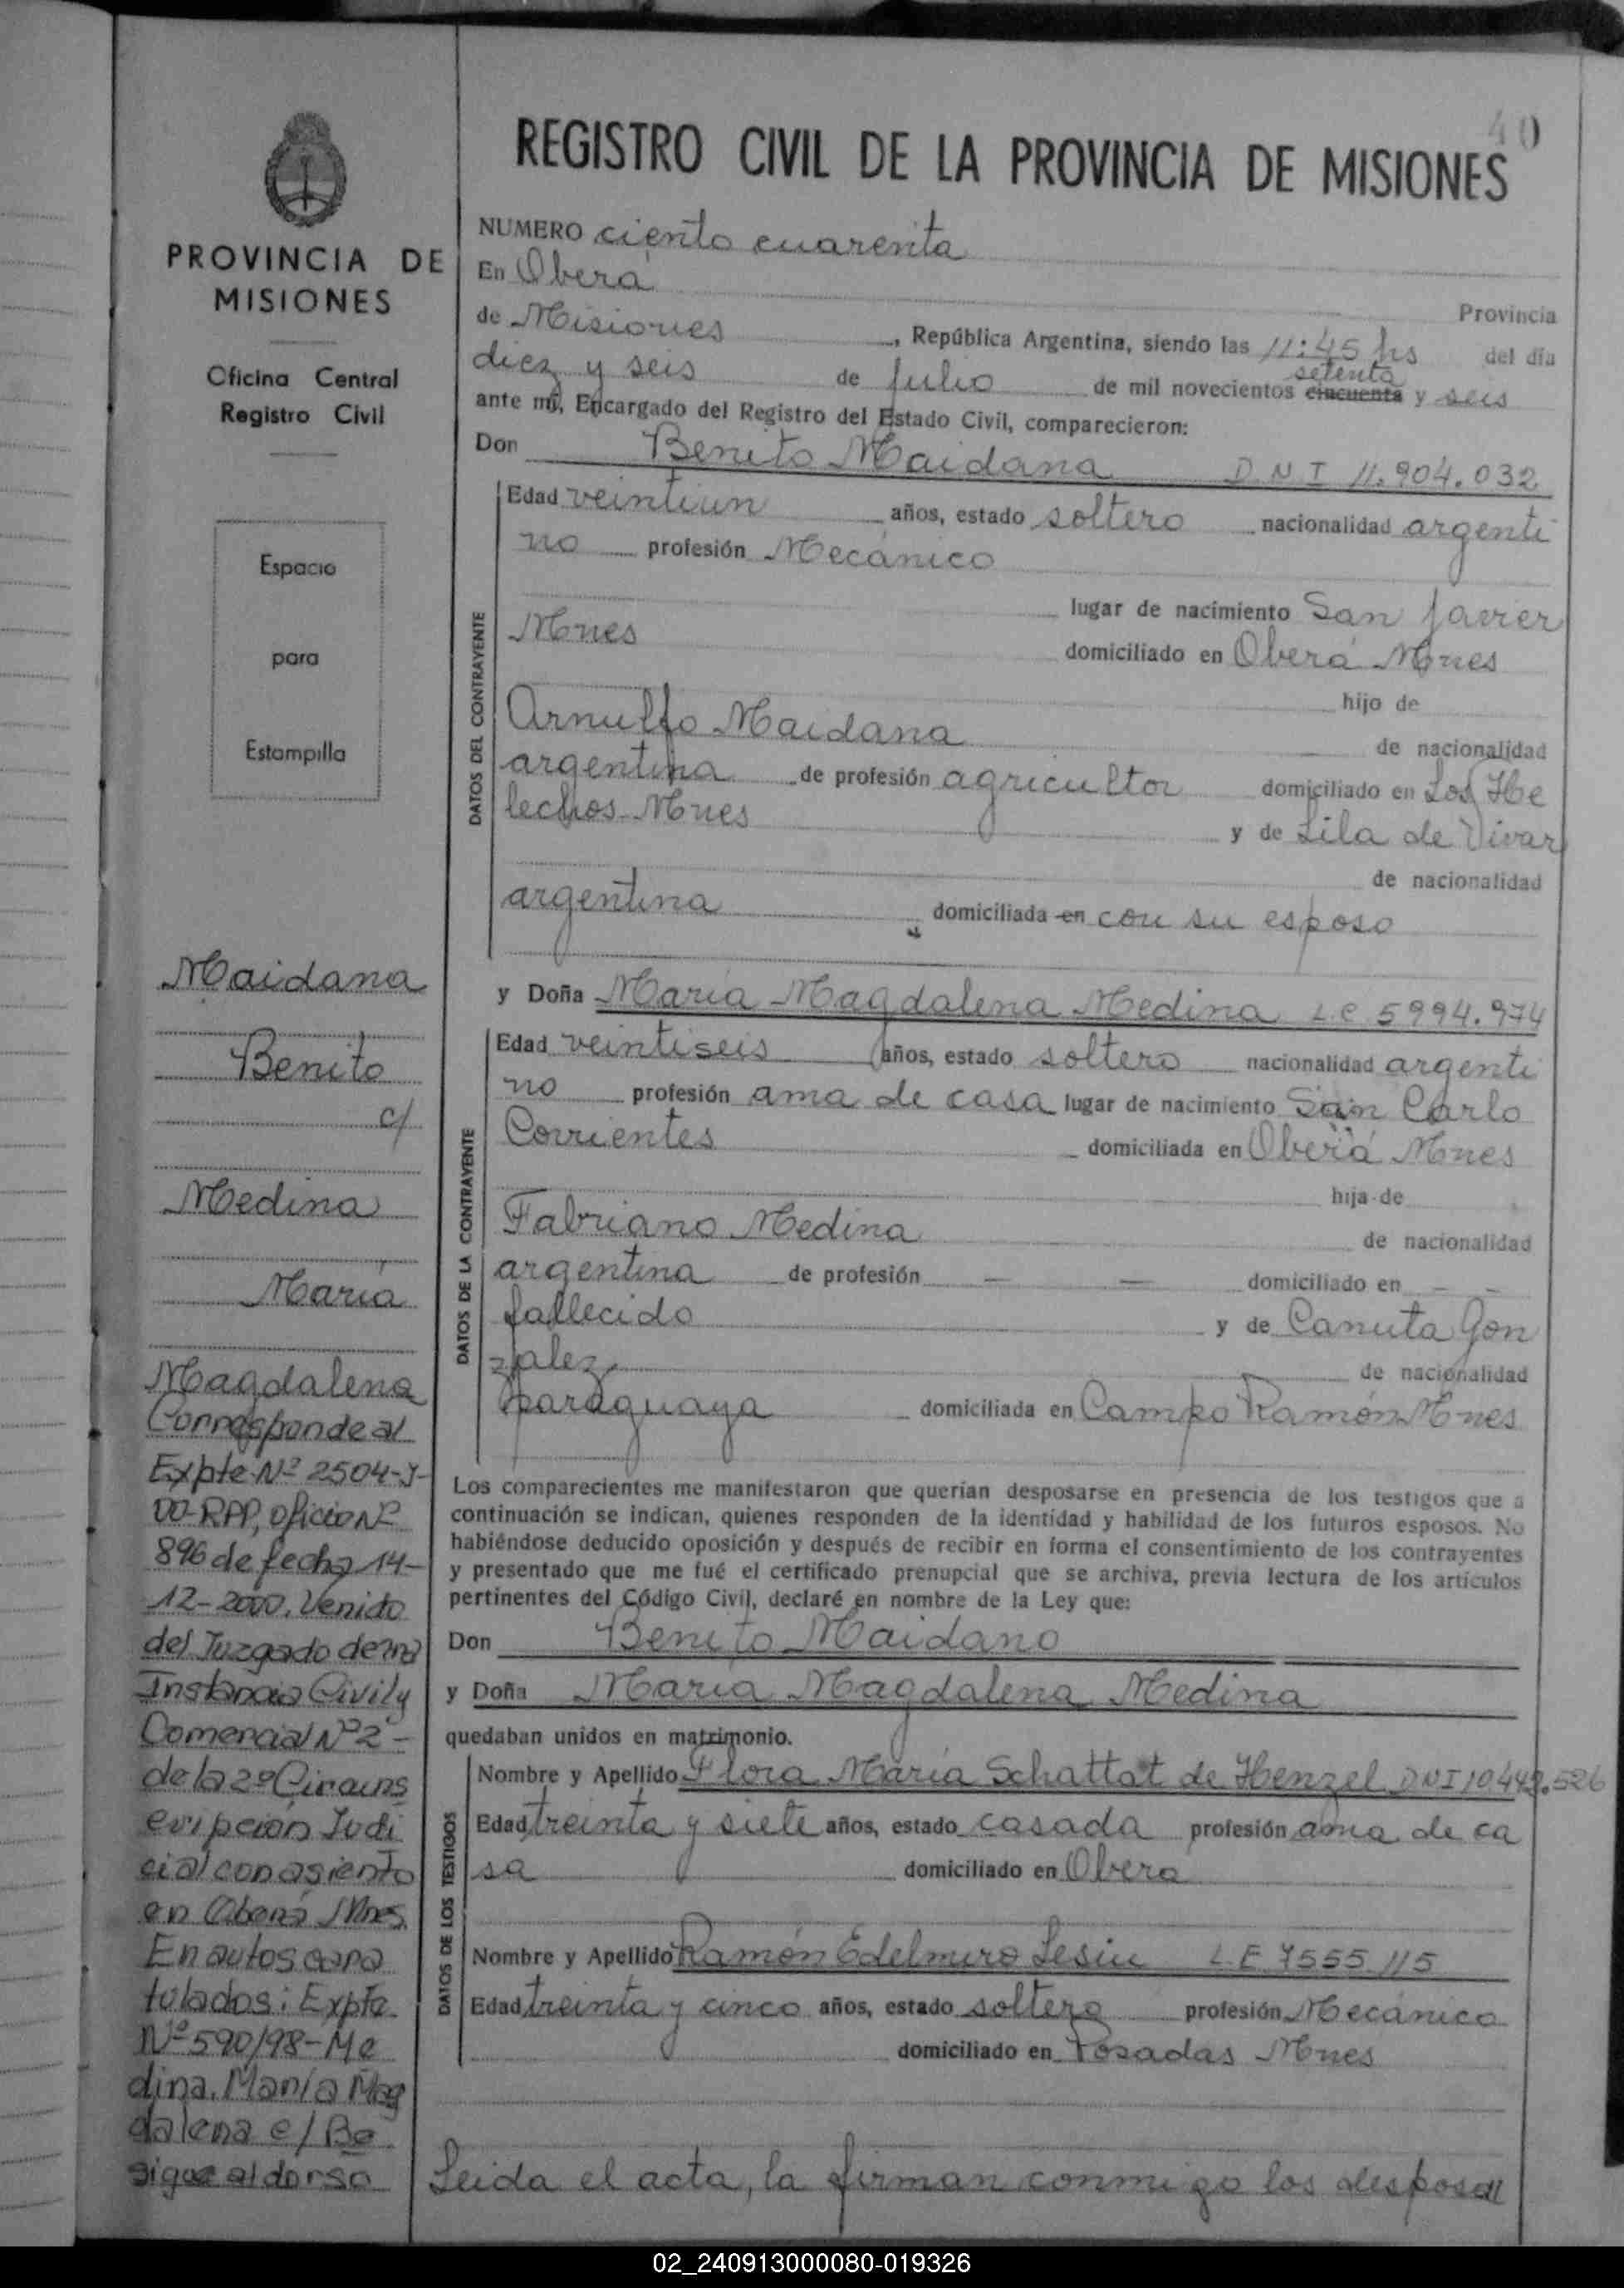 40
REGISTRO CIVIL DE LA PROVINCIA DE MISIONES
PROVINCIA DE
MISIONES
Oficina Central
Registro Civil
Espacio
para
Estampilla
Maidana
Benito
c/
Medina
Maria
Magdalena
Corresponde al
Expte Nº 2504-J-
00-RPP, oficio Nº
896 de fecha 14-
12-2000. Venido
del Juzgado de 1ra
Instancia Civil y
Comercial Nº 2-
de la 2º Circuns
cripción Judi
cial con asiento
en Oberá Mnes.
En autos cara
tulados: Expte.
Nº 590/98-Me
dina, María Mag
dalena c/ Be
sigue al dorso
NUMERO ciento cuarenta
En Oberá
Provincia
de Misiones, República Argentina, siendo las 11:45 hs del día
diez y seis de Julio de mil novecientos cincuenta setenta y seis
ante mí, Encargado del Registro del Estado Civil, comparecieron:
Don Benito Maidana D N I 11.904.032
DATOS DEL CONTRAYENTE
Edad veintiun años, estado soltero nacionalidad argenti
no profesión Mecánico
lugar de nacimiento San Javier
Mnes domiciliado en Oberá Mnes
hijo de
Arnulfo Maidana de nacionalidad
argentina de profesión agricultor domiciliado en Los He
lechos-Mnes y de Lila de Vivar
de nacionalidad
argentina domiciliada en con su esposo
y Doña María Magdalena Medina L.C 5994.974
DATOS DE LA CONTRAYENTE
Edad veintiseis años, estado soltero nacionalidad argenti
no profesión ama de casa lugar de nacimiento San Carlo
Corrientes domiciliada en Oberá Mnes
hija de
Fabriano Medina de nacionalidad
argentina de profesión — — domiciliado en — —
fallecido y de Canuta Gon
zalez, de nacionalidad
paraguaya domiciliada en Campo Ramón Mnes
Los comparecientes me manifestaron que querían desposarse en presencia de los testigos que a
continuación se indican, quienes responden de la identidad y habilidad de los futuros esposos. No
habiéndose deducido oposición y después de recibir en forma el consentimiento de los contrayentes
y presentado que me fué el certificado prenupcial que se archiva, previa lectura de los artículos
pertinentes del Código Civil, declaré en nombre de la Ley que:
Don Benito Maidano
y Doña Maria Magdalena Medina
quedaban unidos en matrimonio.
DATOS DE LOS TESTIGOS
Nombre y Apellido Flora María Schattat de Henzel DNI 10.442.526
Edad treinta y siete años, estado casada profesión ama de ca
sa domiciliado en Obera
Nombre y Apellido Ramón Edelmiro Lesiu L E 7555 115
Edad treinta y cinco años, estado soltero profesión Mecánico
domiciliado en Posadas Mnes
Leida el acta, la firman conmigo los desposa
02_240913000080-019326